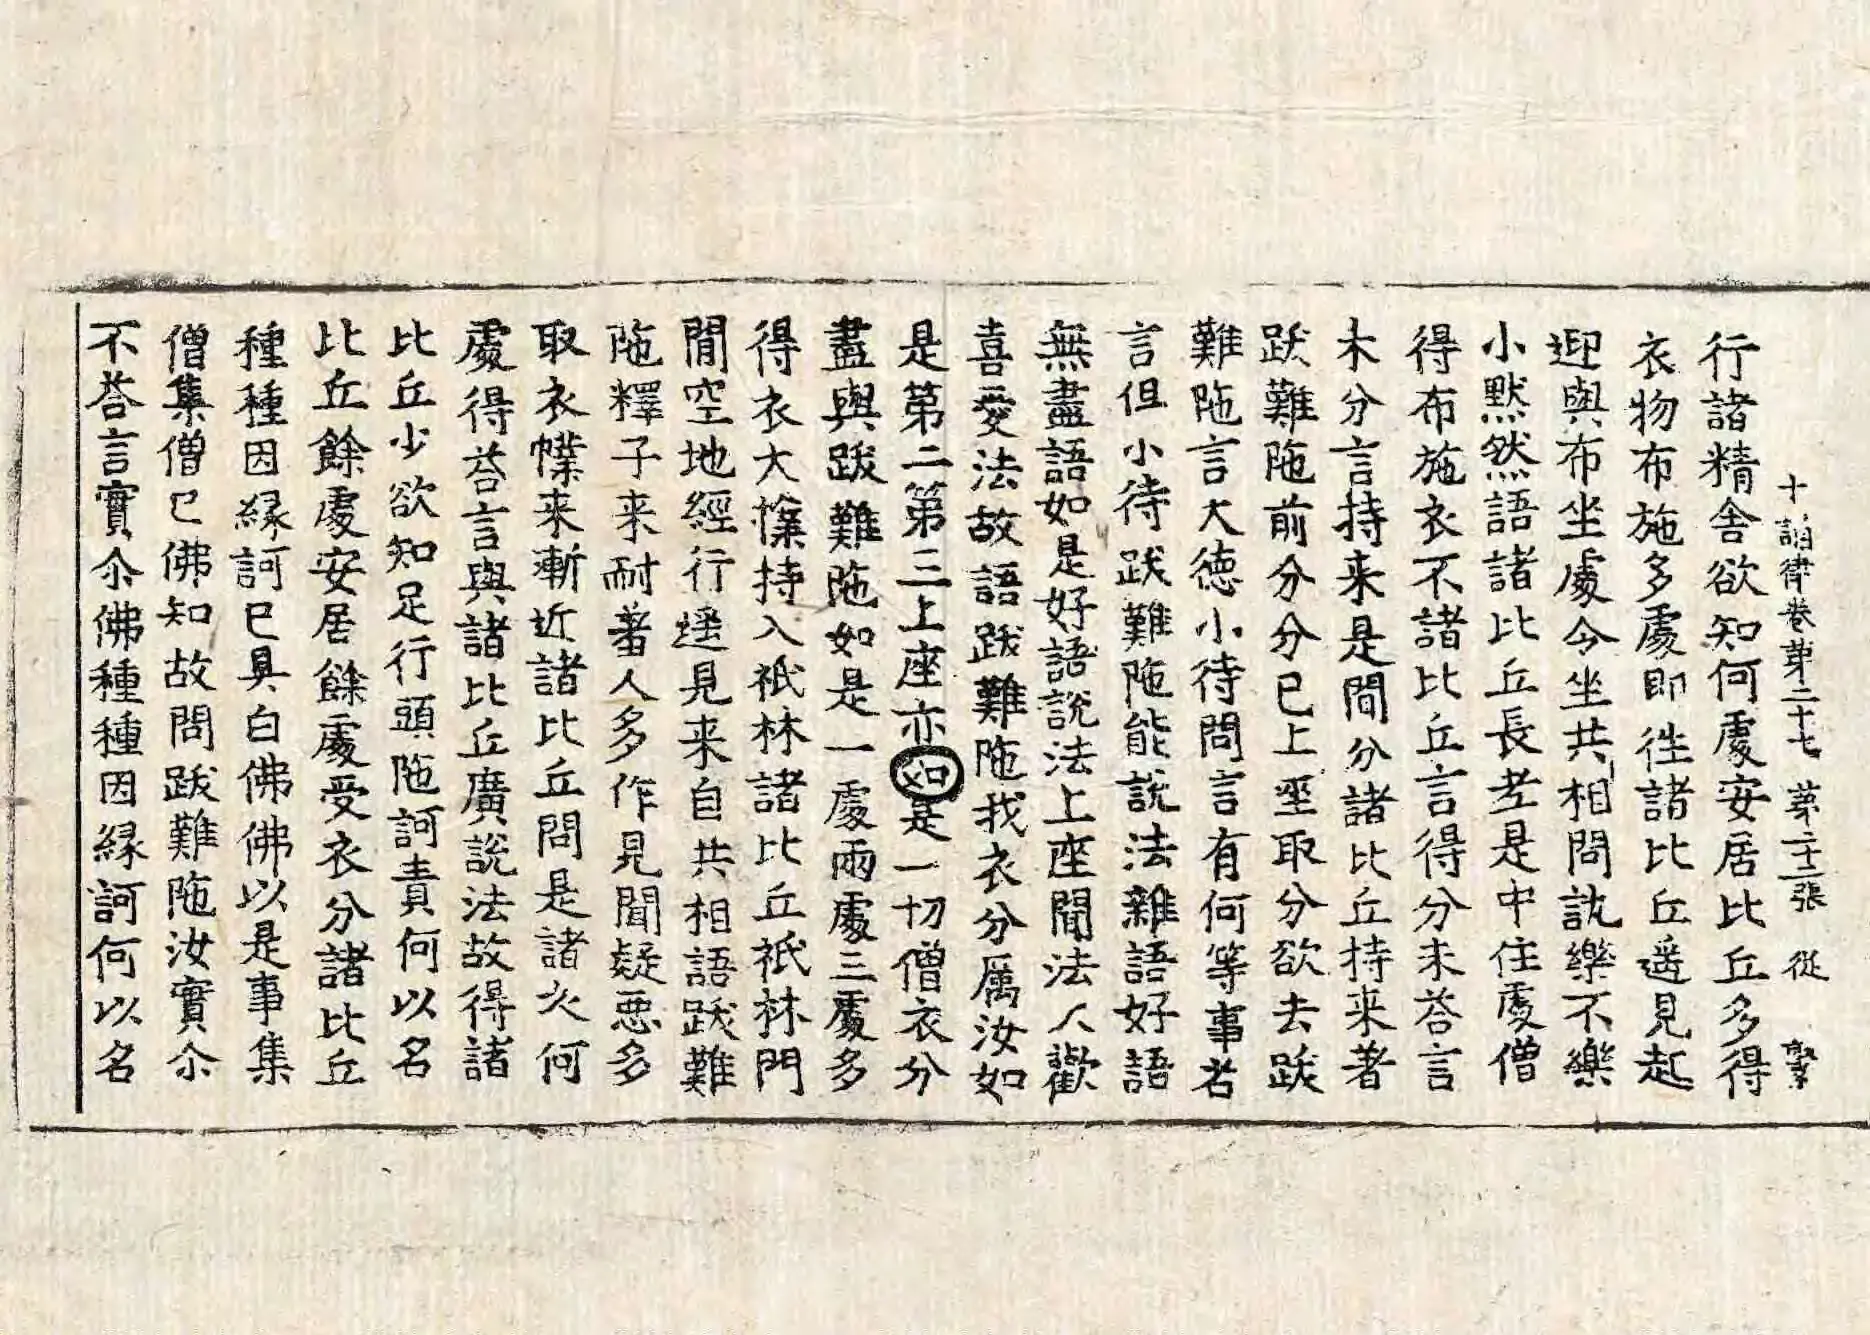 十誦律卷第二十七 第二十二張 從 𣫍
行諸精舍欲知何處安居比丘多得
衣物布施多處即徃諸比丘遥見起
迎與布坐處今坐共相問訊樂不樂
小默然語諸比丘長老是中住處僧
得布施衣不諸比丘言得分未荅言
未分言持来是閒分諸比丘持来著
跋難陁前分分已上座取分欲去跋
難陁言大德小待問言有何等事者
言但小待跋難陁能說法雜語好語
無盡語如是好語說法上座聞法人歡
喜愛法故語跋難陁我衣分屬汝如
是第二第三上座亦如是一切僧衣分
盡與跋難陁如是一處兩處三處多
得衣大檏持入祇林諸比丘祇林門
閒空地經行遥見来自共相語跋難
陁釋子来耐著人多作見聞疑惡多
取衣幞来漸近諸比丘問是諸衣何
處得荅言與諸比丘廣說法故得諸
比丘少欲知足行頭陁訶責何以名
比丘餘處安居餘處受衣分諸比丘
種種因縁訶已具白佛佛以是事集
僧集僧已佛知故問跋難陁汝實尒
不荅言實尒佛種種因縁訶何以名